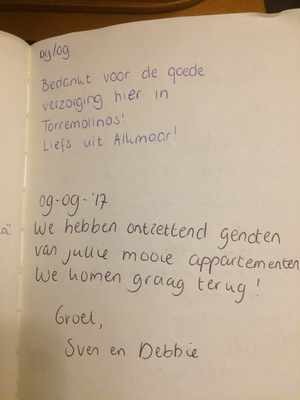 09/09
Bedankt voor de goede
verzorging hier in
Torremolinos!
Liefs uit Alkmaar!
09-09-'17
We hebben ontzettend genoten
van jullie mooie appartementen
We komen graag terug!
Groet,
Sven en Debbie